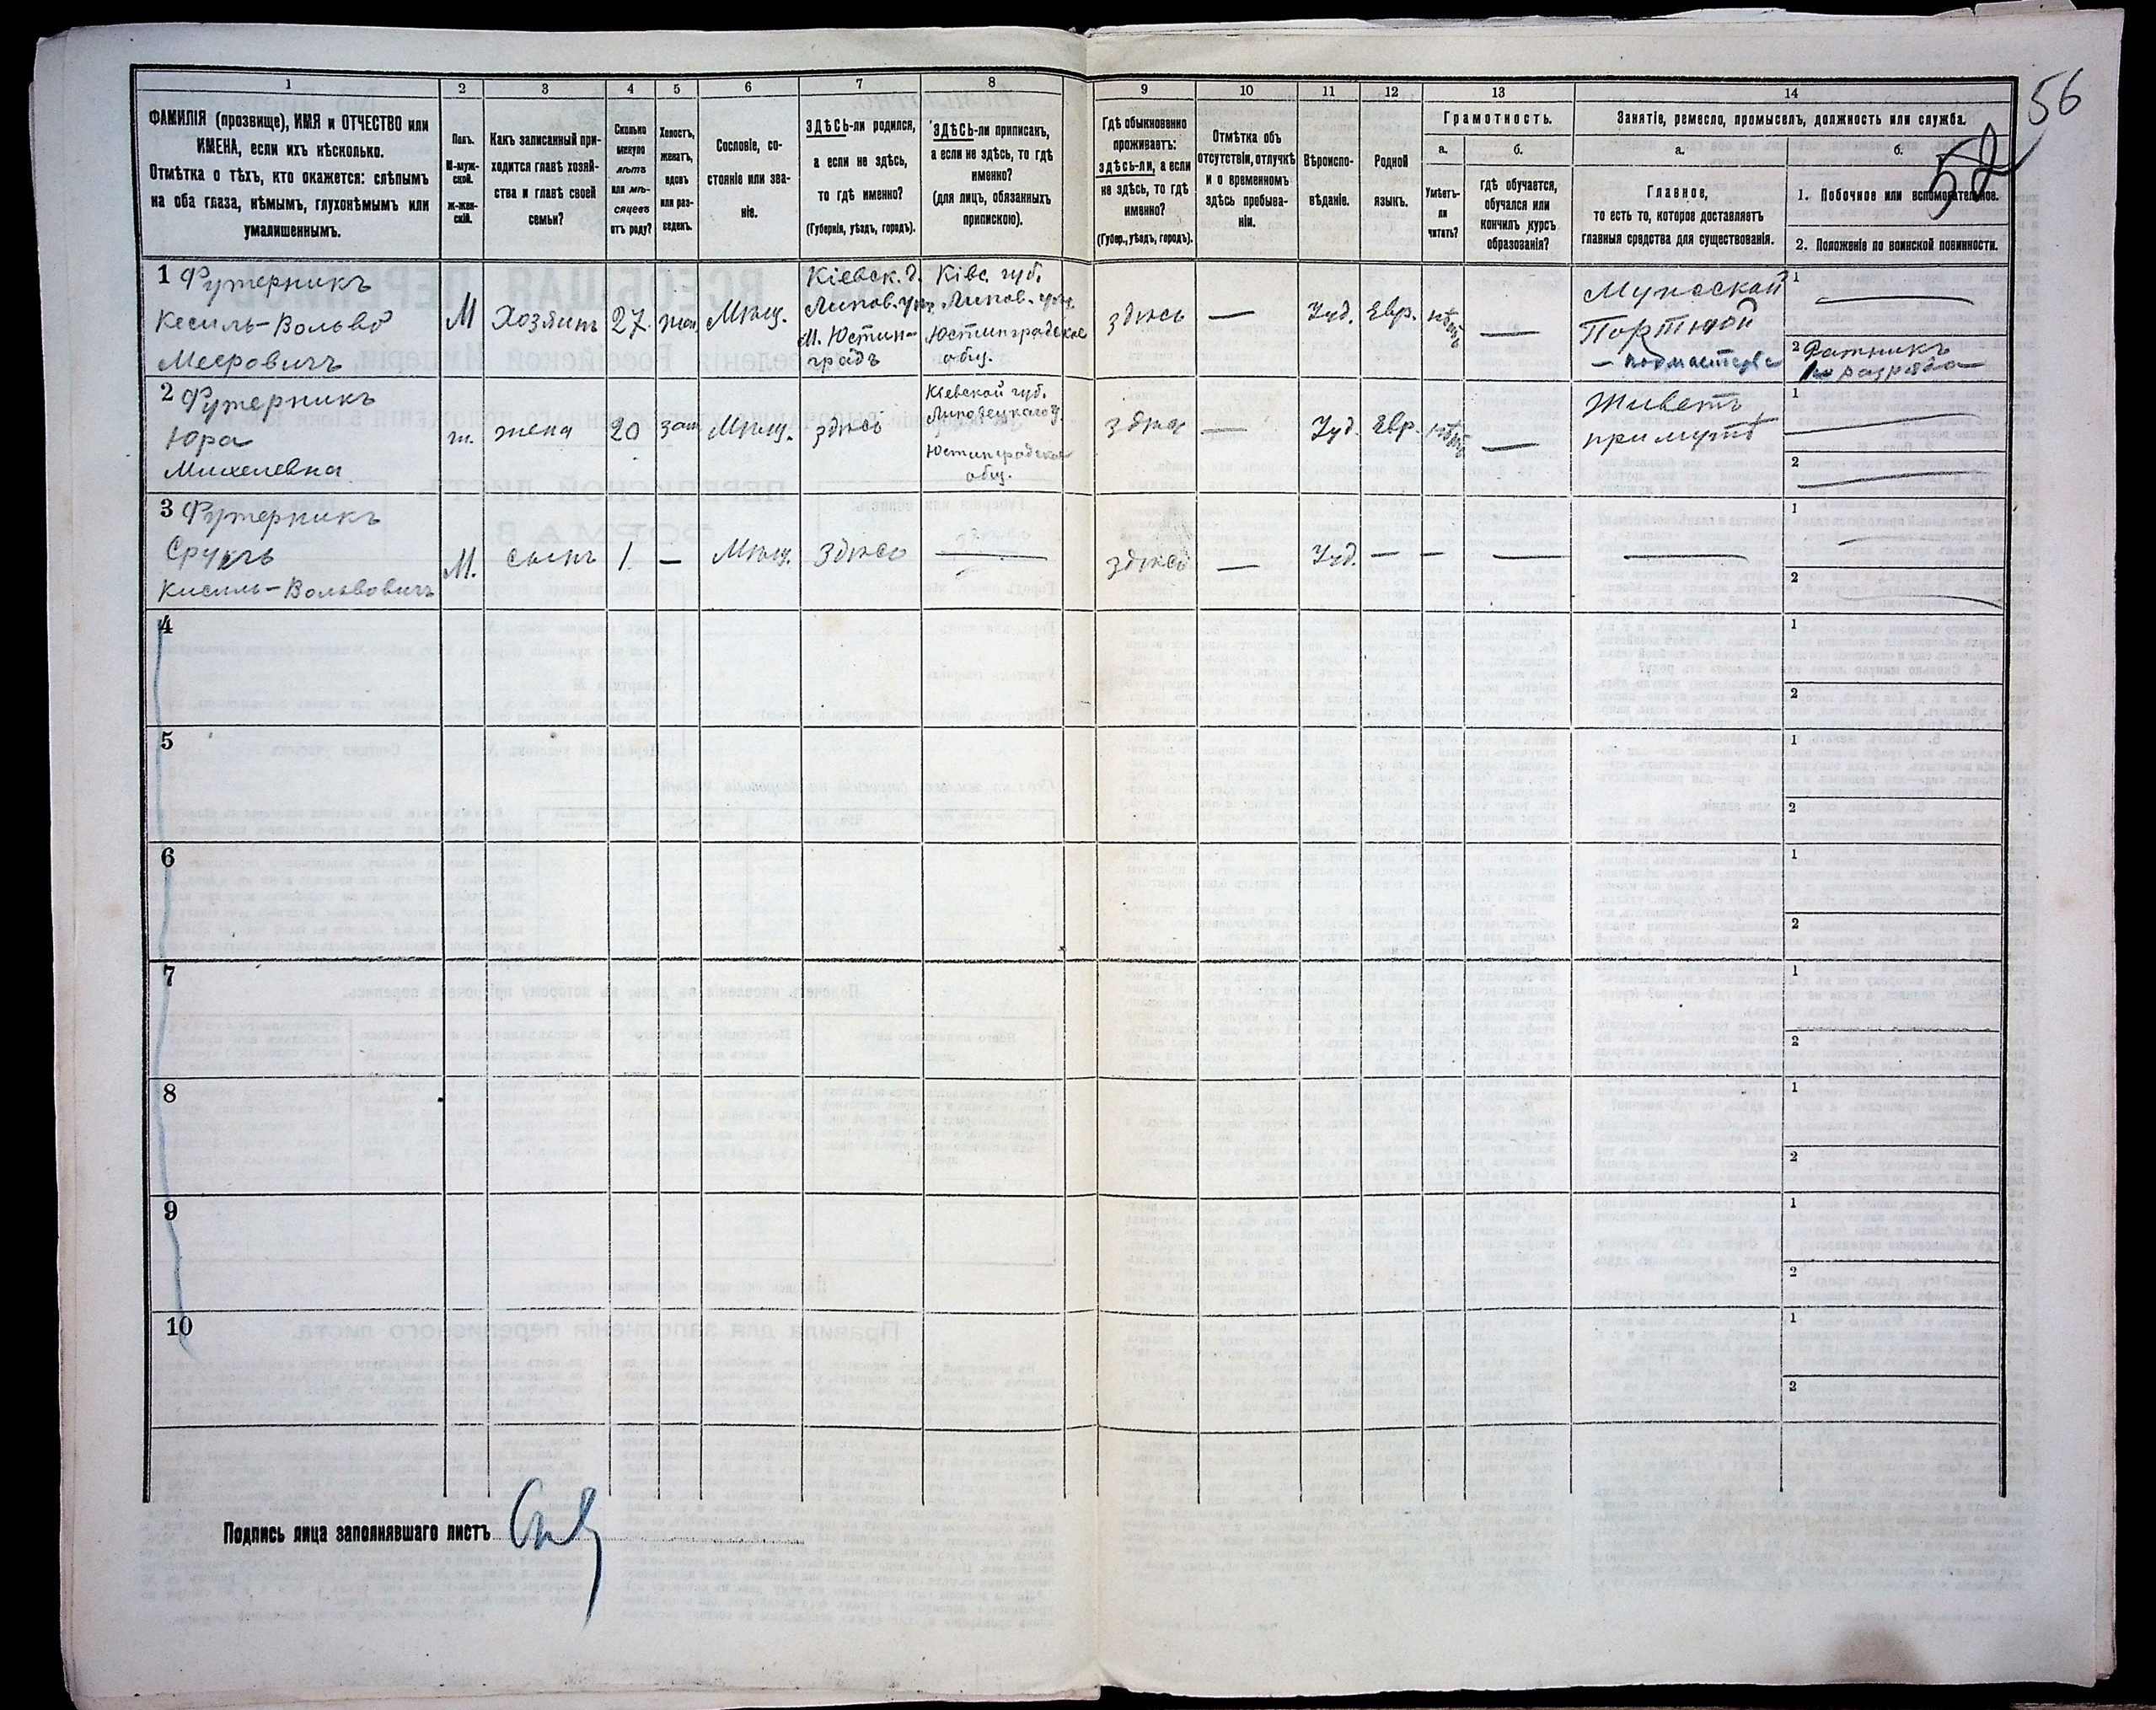 56
52
1
2
3
4
5
6
7
8
9
10
11
12
13
14
ФАМИЛІЯ (прозвище), ИМЯ и ОТЧЕСТВО или
ИМЕНА, если ихъ нѣсколько.
Отмѣтка о тѣхъ, кто окажется: слѣпымъ
на оба глаза, нѣмымъ, глухонѣмымъ или
умалишеннымъ.
Полъ.
М-муж-
ской.
ж-жен-
скій.
Какъ записанный при-
ходится главѣ хозяй-
ства и главѣ своей
семьи?
Сколько
минуло
лѣтъ
или мѣ-
сяцевъ
отъ роду?
Холостъ,
женатъ,
вдовъ
или раз-
веденъ.
Сословіе, со-
стояніе или зва-
ніе.
ЗДѢСЬ-ли родился,
а если не здѣсь,
то гдѣ именно?
(Губернія, уѣздъ, городъ).
ЗДѢСЬ-ли приписанъ,
а если не здѣсь, то гдѣ
именно?
(для лицъ, обязанныхъ
припискою).
Гдѣ обыкновенно
проживаетъ:
здѣсь-ли, а если
не здѣсь, то гдѣ
именно?
(Губер., уѣздъ, городъ).
Отмѣтка объ
отсутствіи, отлучкѣ
и о временномъ
здѣсь пребыва-
ніи.
Вѣроиспо-
вѣданіе.
Родной
языкъ.
Грамотность.
а.
Умѣетъ-
ли
читать?
б.
гдѣ обучается,
обучался или
кончилъ курсъ
образованія?
Занятіе, ремесло, промыселъ, должность или служба.
а.
Главное,
то есть то, которое доставляетъ
главныя средства для существованія.
б.
1. Побочное или вспомогательное.
2. Положеніе по воинской повинности.
1 Футерникъ
Кесиль-Вольво
Меeровичъ
М
Хозяинъ
27.
жен.
Мѣщ.
Кіевск. г.
Липов. у.
М. Юстин-
градъ
Кіевс. губ.
Липов. у.
Юстинградское
общ.
здѣсь
—
Іуд.
Евр.
нѣтъ
—
Мужской
Портной
— подмастерье
1 —
2 Ратникъ
разряда
2 Футерникъ
Юра
Михелевна
ж.
жена
20
зам
Мѣщ.
здѣсь
Кіевской губ.
Липовецкаго у.
Юстинградское
общ.
здѣсь
—
Іуд.
Евр.
нѣтъ
—
Живетъ
при мужѣ
1 —
2 —
3 Футерникъ
Сруль
Кисиль-Вольвовичъ
М.
сынъ
1.
—
Мѣщ.
здѣсь
—
здѣсь
—
Іуд.
—
—
—
—
1 —
2 —
4
1
2
5
1
2
6
1
2
7
1
2
8
1
2
9
1
2
10
1
2
Подпись лица заполнявшаго листъ